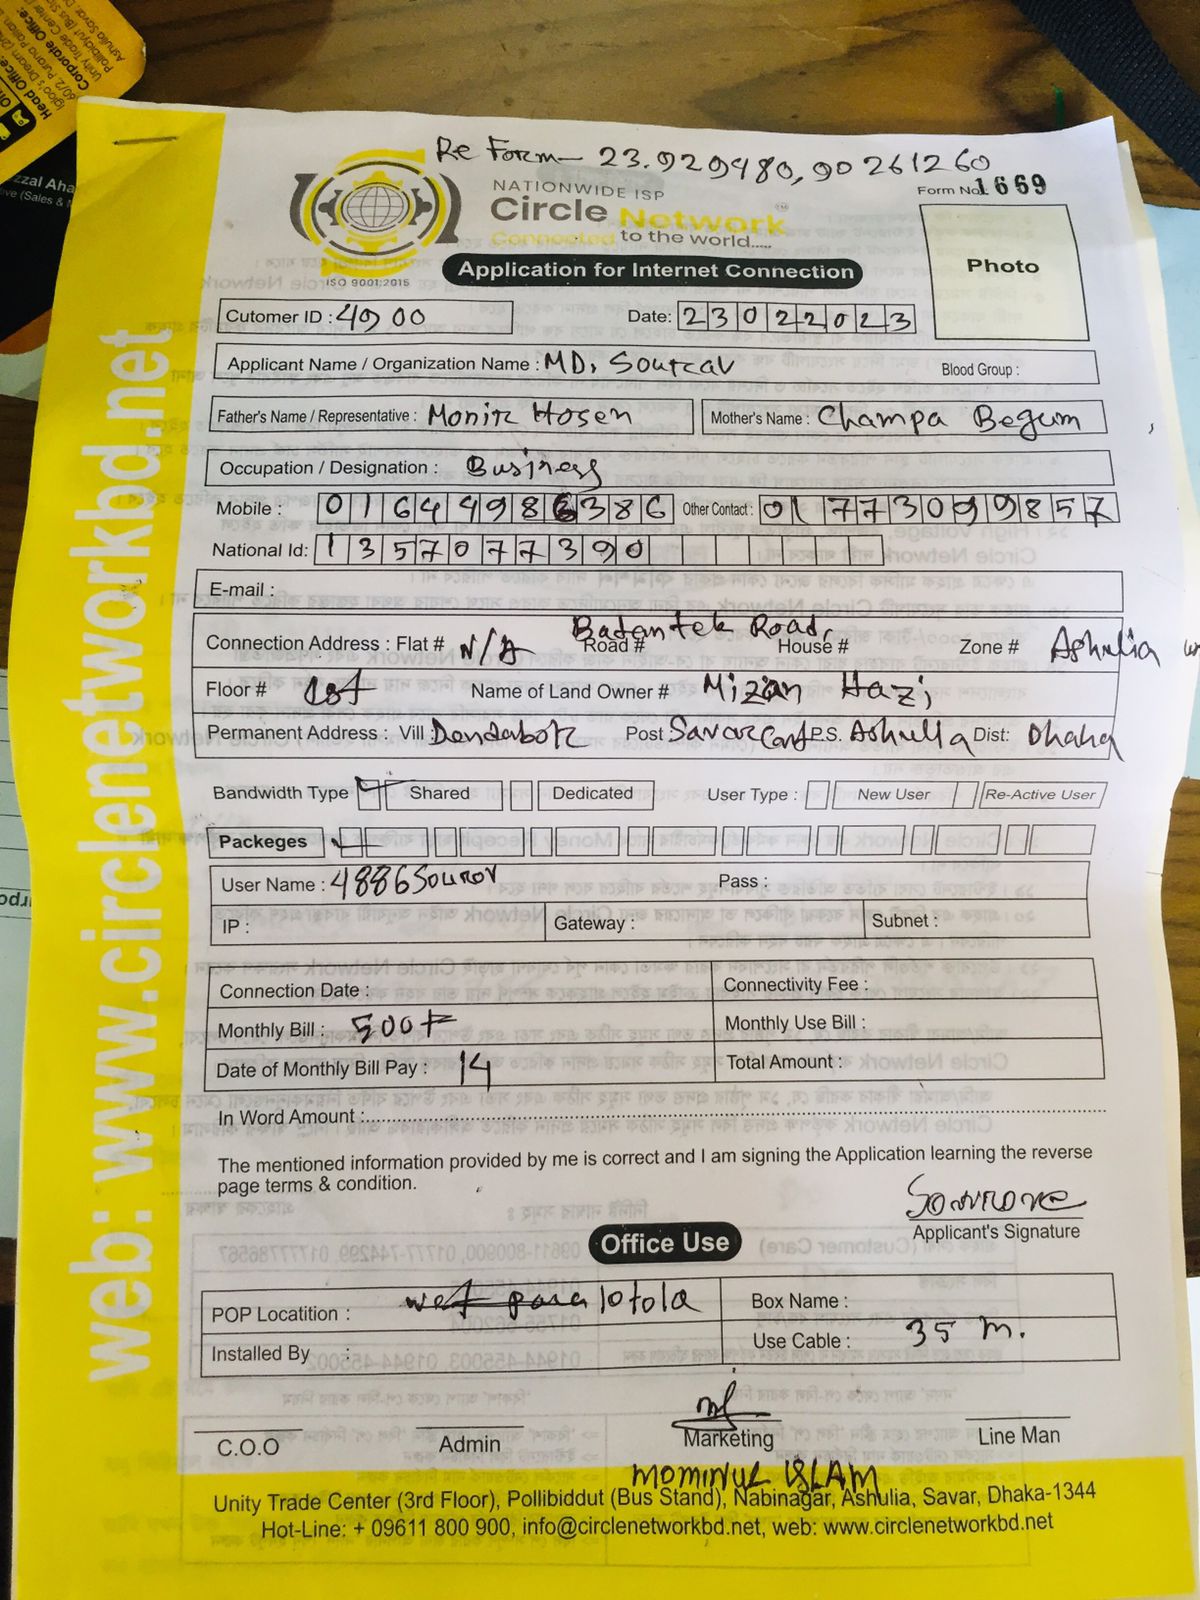 Re Form- 23.929480,90261260
Form No 1669
NATIONWIDE ISP
Circle Network
Connected to the world.....
ISO 9001:2015
Application for Internet Connection
Photo
Cutomer ID : 4900
Date: 23022023
Applicant Name / Organization Name : MD. Sourav
Blood Group :
Father's Name / Representative : Monir Hosen
Mother's Name : Champa Begum
Occupation / Designation : Business
Mobile : 01644986386 Other Contact : 01773099857
National Id: 1357077390
E-mail :
Connection Address : Flat # N/A Road # House # Zone # Ashulia
Road,
Floor # 1st Name of Land Owner # Mizan Hazi
Permanent Address : Vill Dendabor Post Savar Cant P.S. Ashulia Dist: Dhaka
Bandwidth Type Shared Dedicated User Type : New User Re-Active User
Packeges
User Name : 4886Sourov Pass :
IP : Gateway : Subnet :
Connection Date : Connectivity Fee :
Monthly Bill : 500 Monthly Use Bill :
Date of Monthly Bill Pay : 14 Total Amount :
In Word Amount :
The mentioned information provided by me is correct and I am signing the Application learning the reverse
page terms & condition.
Applicant's Signature
Office Use
POP Locatition : 10tola Box Name :
Installed By : Use Cable : 35 m.
C.O.O Admin Marketing Line Man
MOMINUL ISLAM
Unity Trade Center (3rd Floor), Pollibiddut (Bus Stand), Nabinagar, Ashulia, Savar, Dhaka-1344
Hot-Line: + 09611 800 900, info@circlenetworkbd.net, web: www.circlenetworkbd.net
web: www.circlenetworkbd.net
Head Office:
Corporate Office: